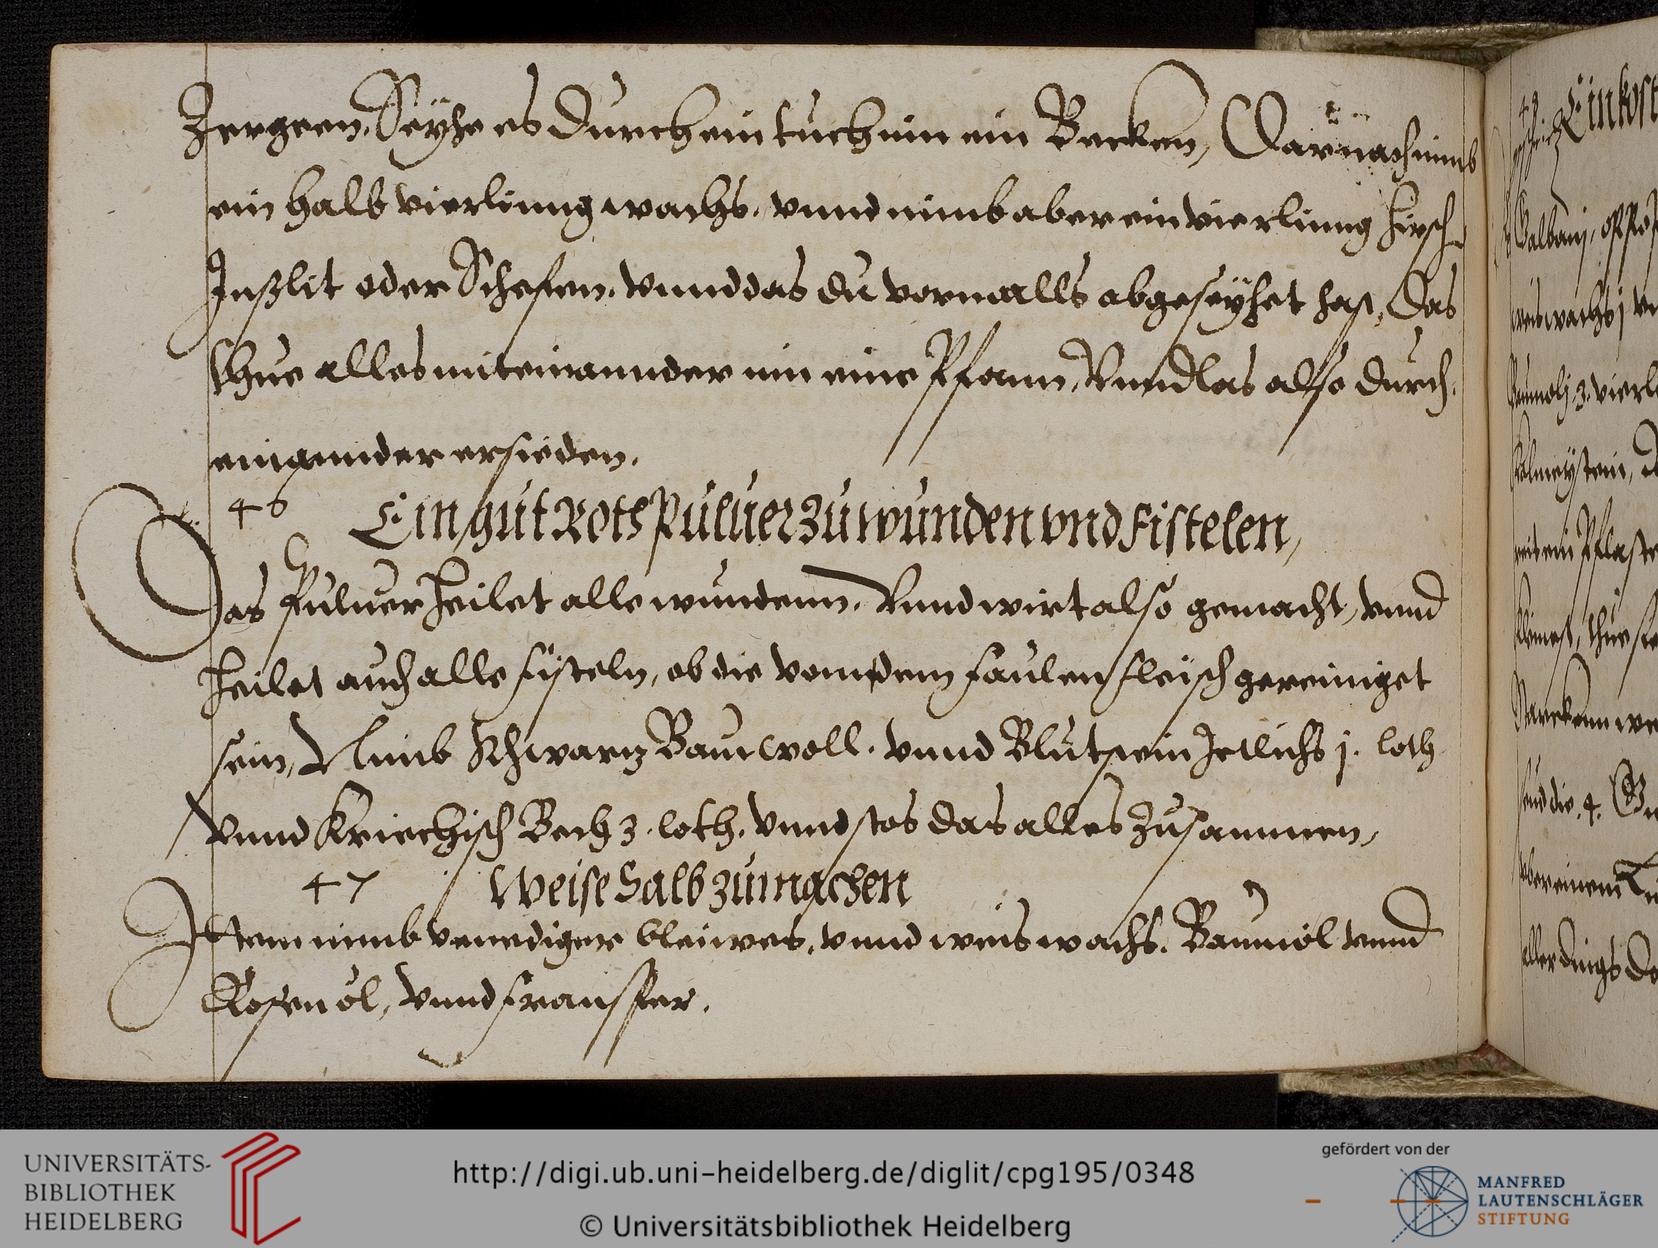 Zergeen, Seyhe es durch ein tuch inn ein Becken, Darnach nimb
ein halb vierlinng wachs, vnnd nimb aber ein vierlinng hirsch
Inßlit oder Schefen, vnnd das du vormalls abgeseyhet hast, Das
thue alles mit einannder inn eine Pfann, Vnnd las also durch
einannder ersieden.
46 Ein gut Roth Puluer zu wunden vnd Fistelen,
Das Puluer heilet alle wundenn, Vnnd wirt also gemacht, vnnd
heilet auch alle fisteln, ob die von dem faulen fleisch gereiniget
sein, Nimb Schwartz Baumwoll, vnnd Blutstein Jetlichs j. loth
Vnnd Kriechisch Bech 3. loth, Vnnd stos das alles Zusammen,
47 Weise Salb zumachen
Ittem nimb venediger bleiweis, vnnd weis wachs, Baumöl vnnd
Rosen öl, Vnnd
49 Ein kost
Galbanj,
weis wachs j
3. vierl
4.
aller dings
UNIVERSITÄTS-
BIBLIOTHEK
HEIDELBERG
http://digi.ub.uni-heidelberg.de/diglit/cpg195/0348
© Universitätsbibliothek Heidelberg
gefördert von der
MANFRED
LAUTENSCHLÄGER
STIFTUNG